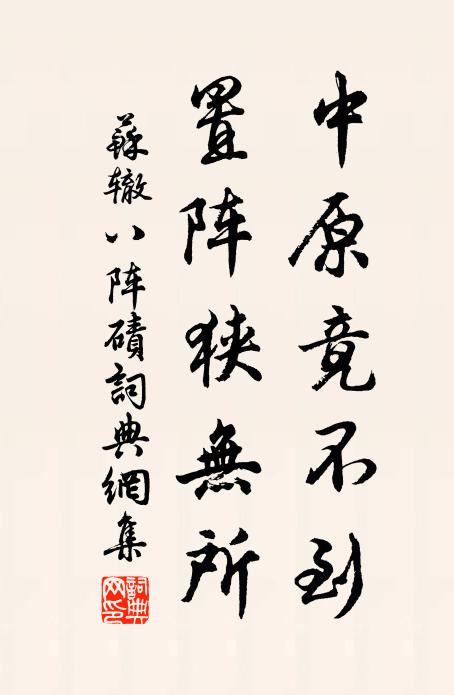 中原竟不到
置阵狭無所
蘇辙八阵磧詞典網集
詞典網印